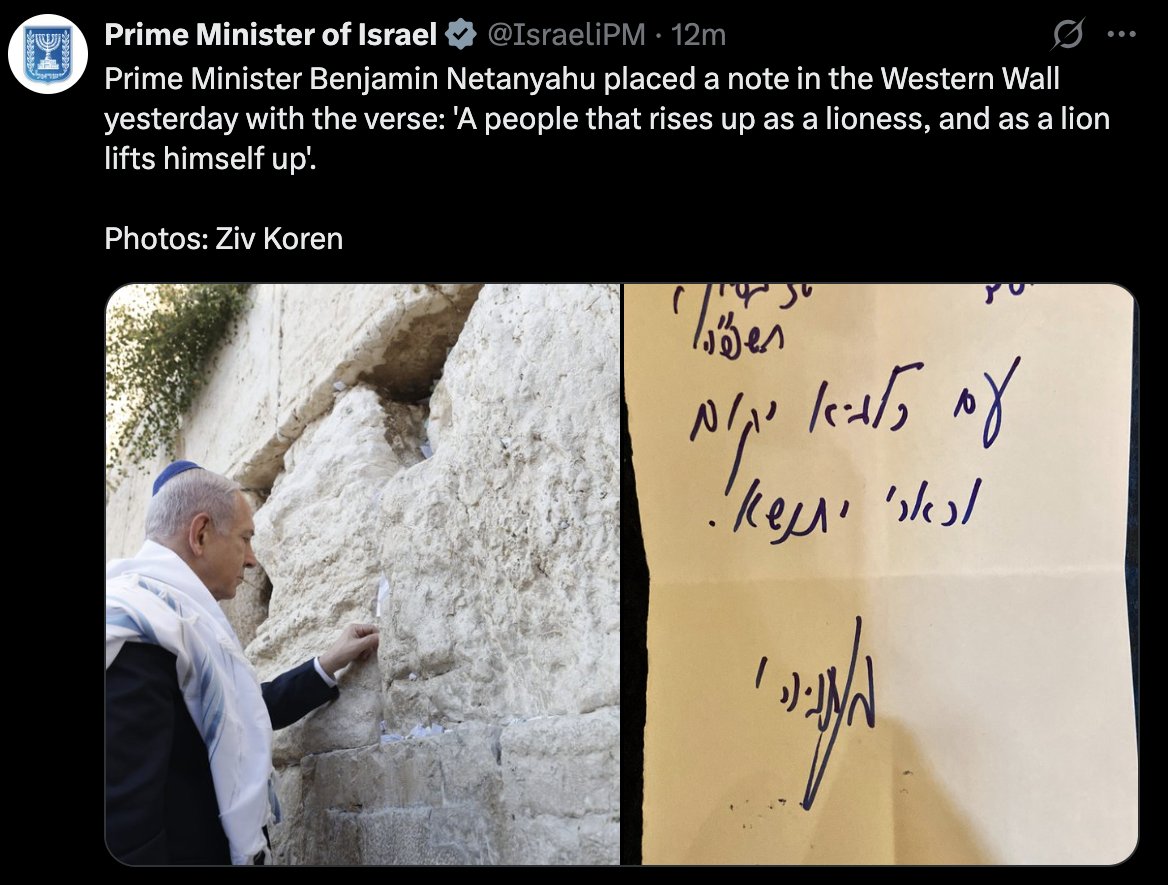 Prime Minister of Israel @IsraeliPM · 12m
Prime Minister Benjamin Netanyahu placed a note in the Western Wall
yesterday with the verse: 'A people that rises up as a lioness, and as a lion
lifts himself up'.
Photos: Ziv Koren
עם כלביא יקום
וכארי יתנשא.